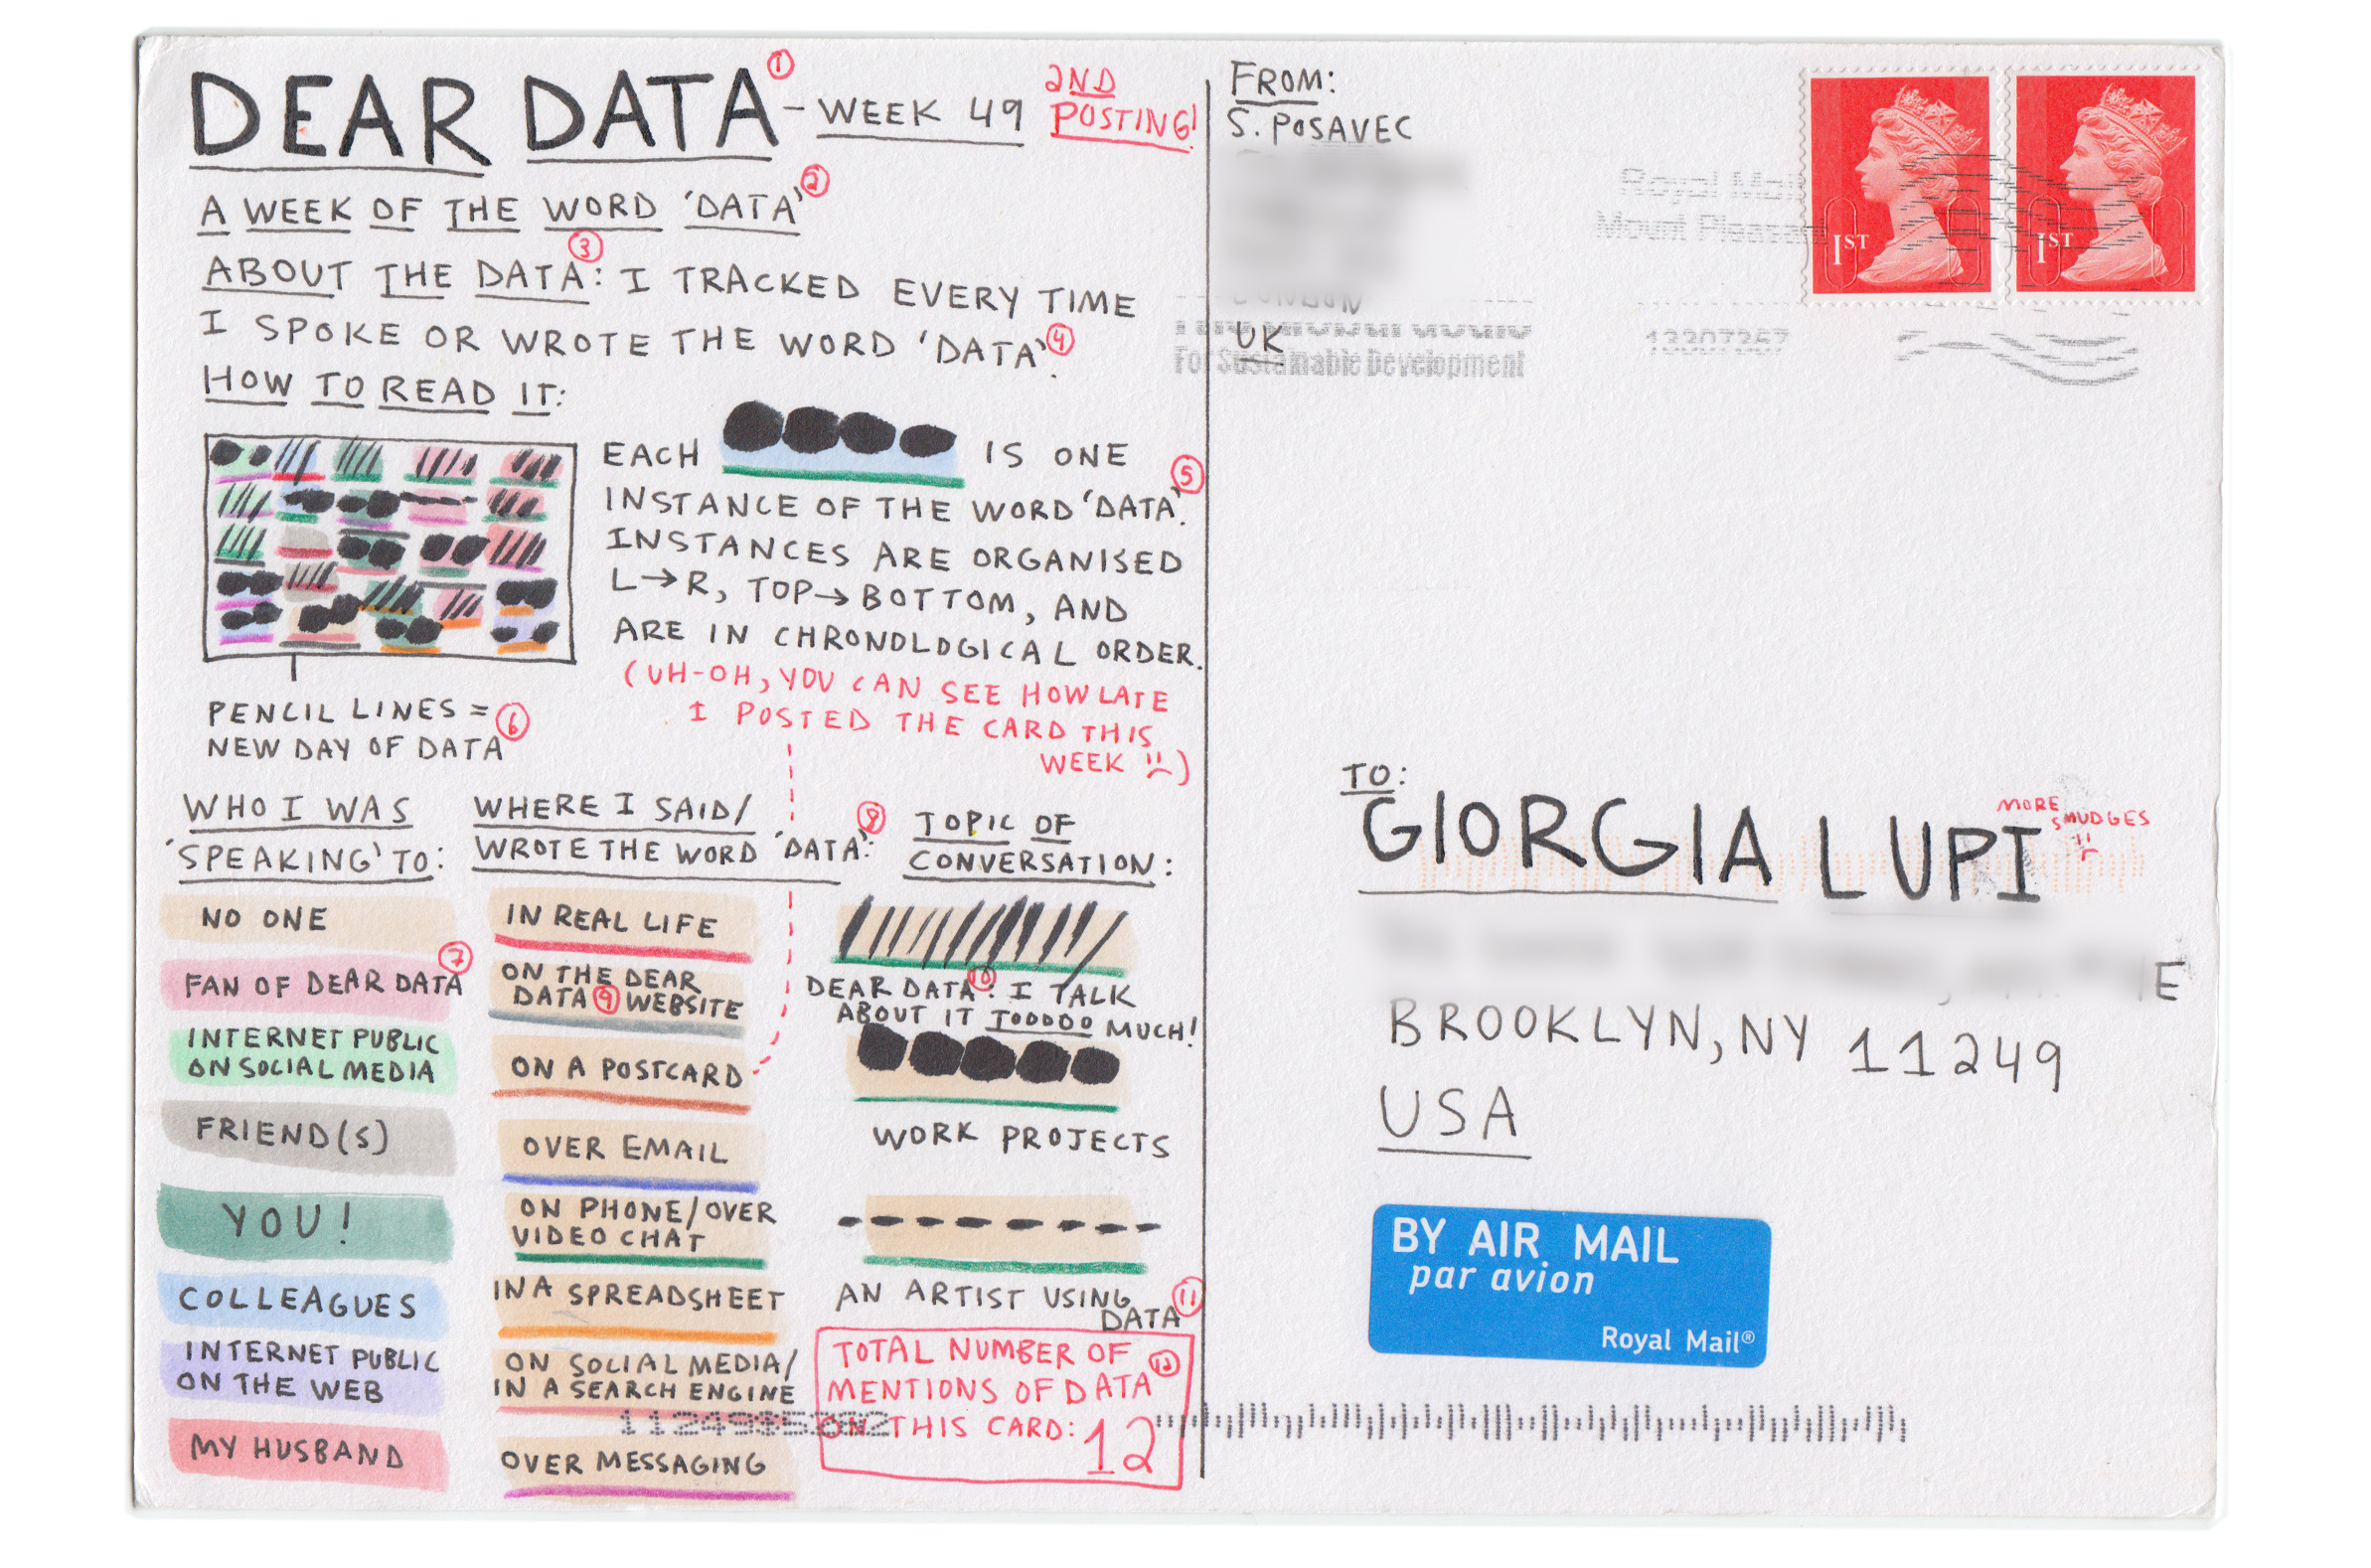 DEAR DATA ① - WEEK 49
2ND
POSTING!
A WEEK OF THE WORD 'DATA' ②
ABOUT THE DATA ③: I TRACKED EVERY TIME
I SPOKE OR WROTE THE WORD 'DATA' ④.
HOW TO READ IT:
EACH IS ONE
INSTANCE OF THE WORD 'DATA' ⑤.
INSTANCES ARE ORGANISED
L→R, TOP→BOTTOM, AND
ARE IN CHRONOLOGICAL ORDER.
(UH-OH, YOU CAN SEE HOW LATE
I POSTED THE CARD THIS
WEEK )
PENCIL LINES =
NEW DAY OF DATA ⑥
WHO I WAS
'SPEAKING' TO:
NO ONE
FAN OF DEAR DATA ⑦
INTERNET PUBLIC
ON SOCIAL MEDIA
FRIEND(S)
YOU!
COLLEAGUES
INTERNET PUBLIC
ON THE WEB
MY HUSBAND
WHERE I SAID/
WROTE THE WORD 'DATA' ⑧:
IN REAL LIFE
ON THE DEAR
DATA ⑨ WEBSITE
ON A POSTCARD
OVER EMAIL
ON PHONE/OVER
VIDEO CHAT
IN A SPREADSHEET
ON SOCIAL MEDIA/
IN A SEARCH ENGINE
OVER MESSAGING
TOPIC OF
CONVERSATION:
DEAR DATA ⑩: I TALK
ABOUT IT TOOOOO MUCH!
WORK PROJECTS
AN ARTIST USING
DATA ⑪
TOTAL NUMBER OF
MENTIONS OF DATA ⑫
ON THIS CARD: 12
FROM:
S. POSAVEC
LONDON
UK
Royal Mail
Mount Pleasant
For Sustainable Development
13307267
1ST
1ST
TO:
GIORGIA LUPI
MORE
SMUDGES
E
BROOKLYN, NY 11249
USA
BY AIR MAIL
par avion
Royal Mail®